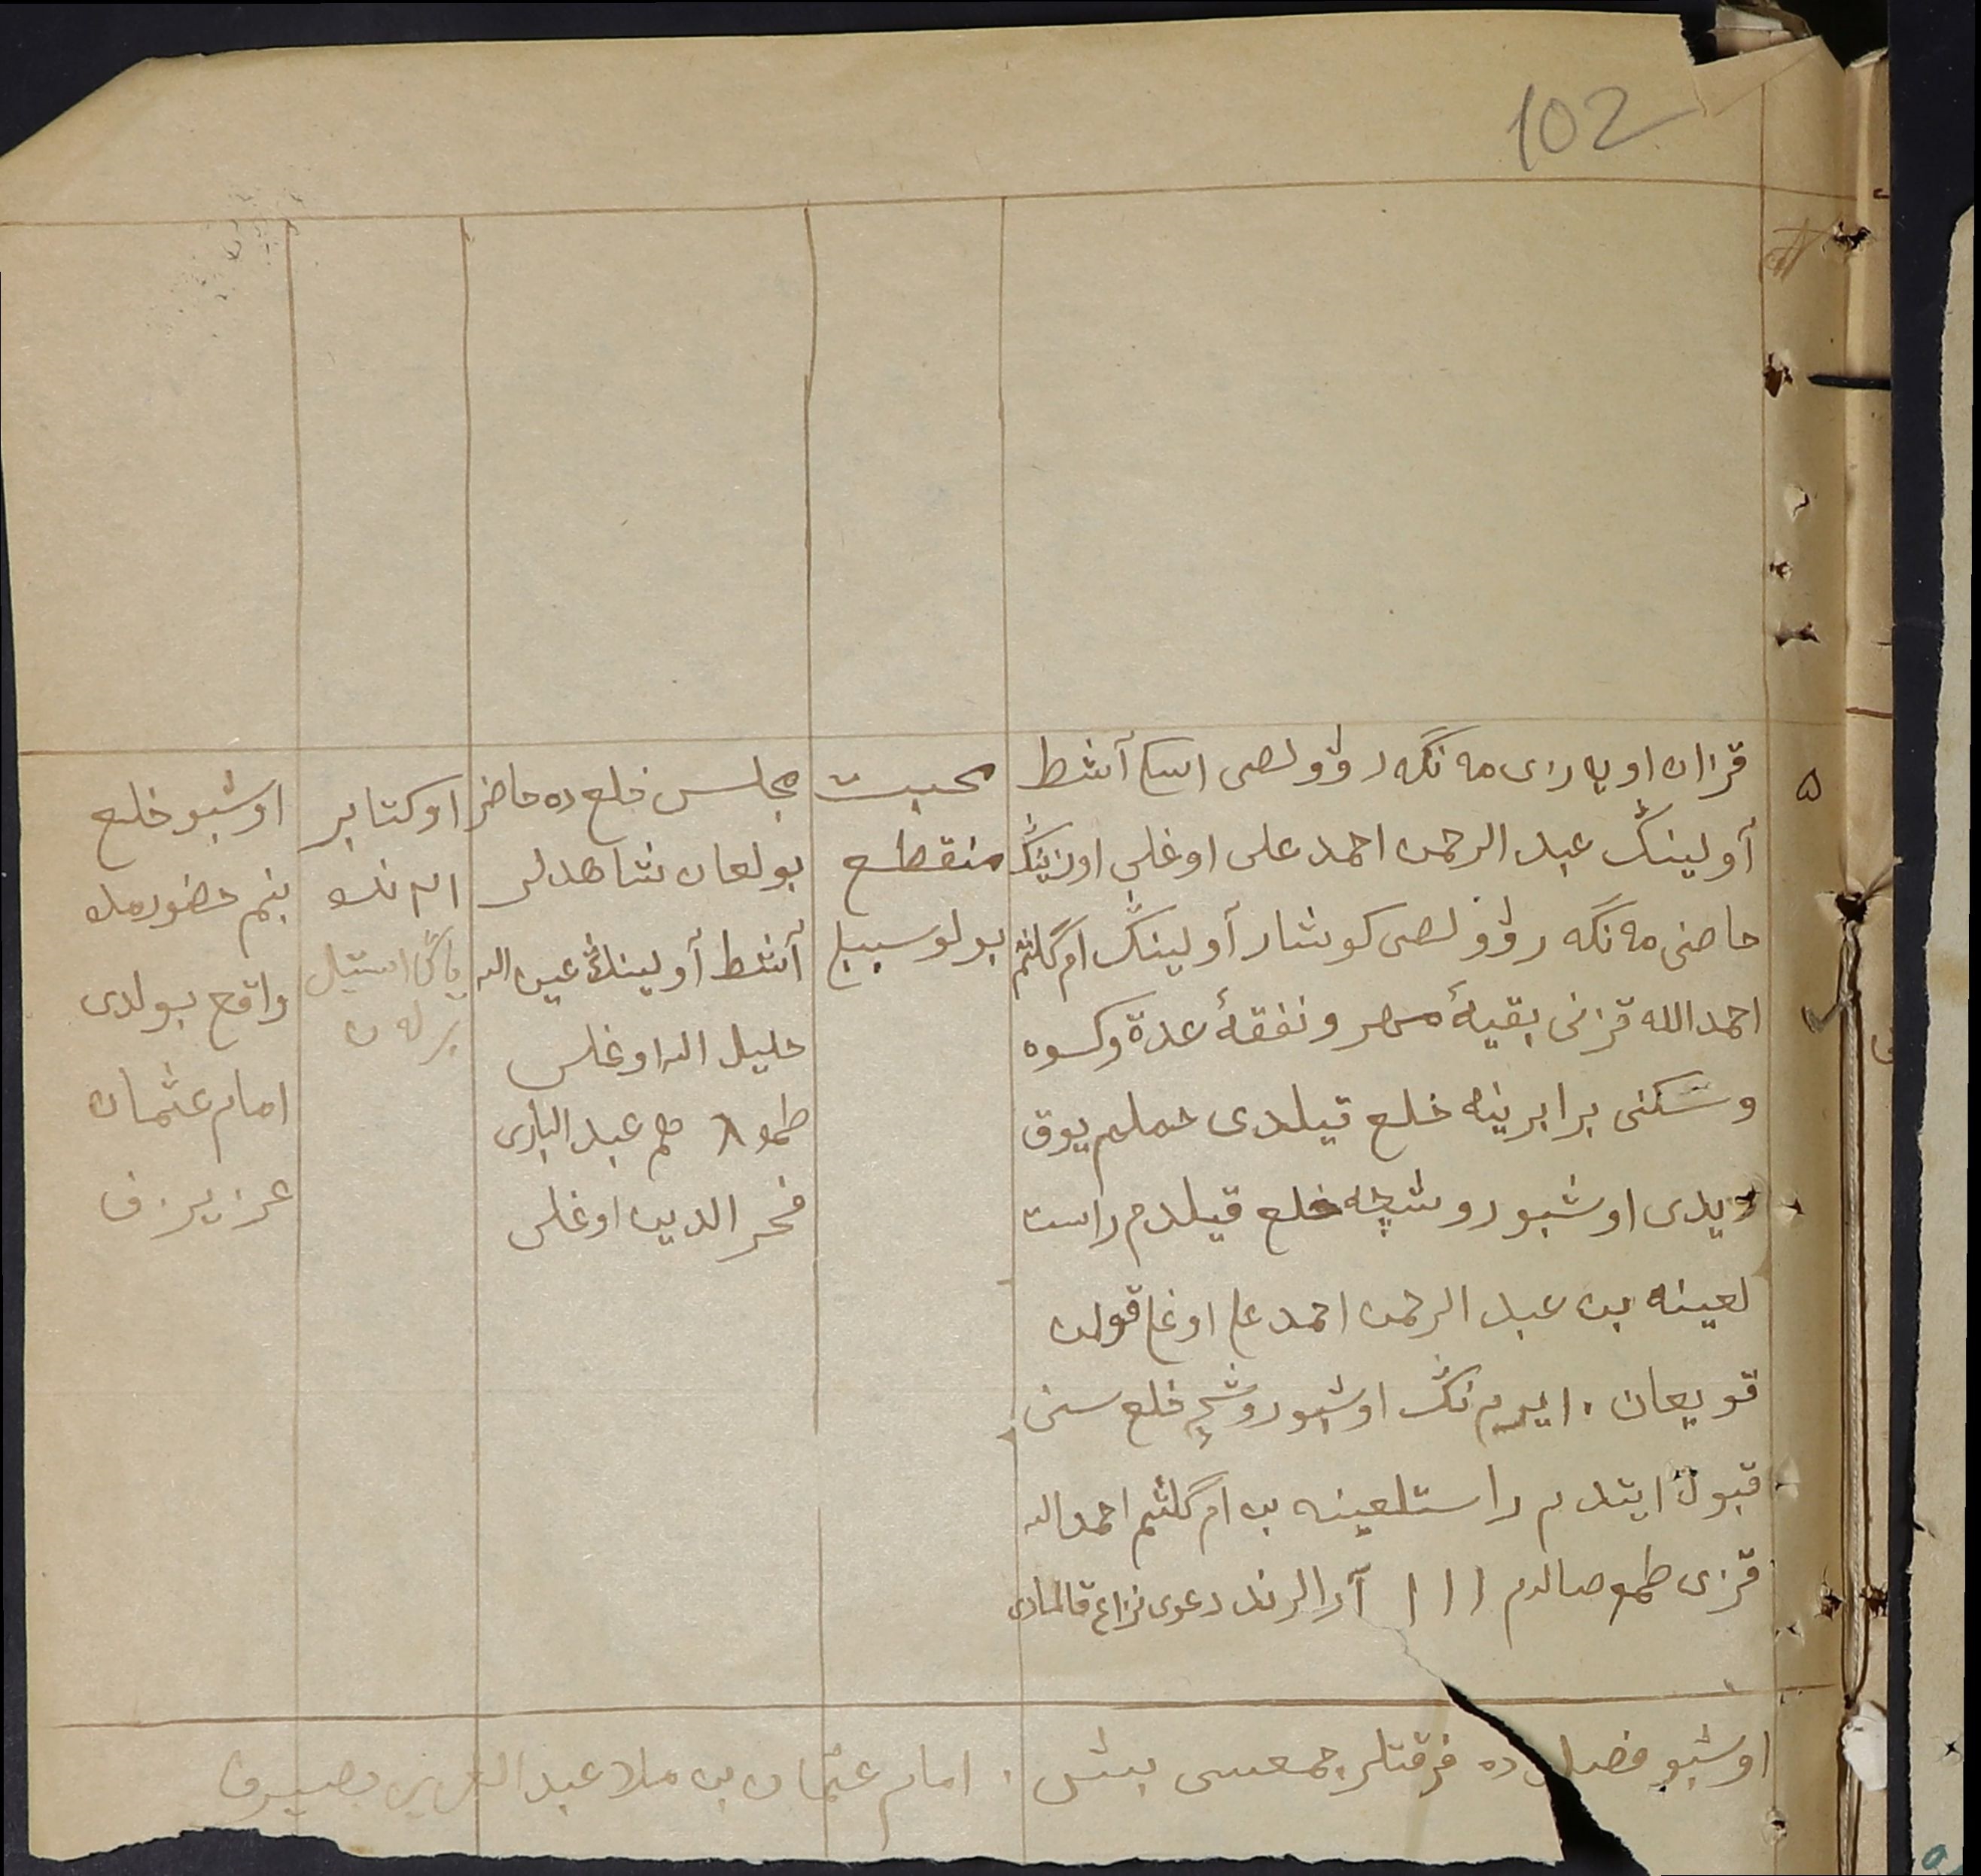 102
۵
قزان اویازی مه نگه ر ۋولصی اسکی آشط
آولینڭ عبد الرحمن احمد علی اوغلی اوزینڭ
خاصنی مه نگه ر ۋولصی کوشار آولینڭ ام گلثم
احمد الله قزنی بقیۀ مهر و نفقۀ عدة و کسوه
و سکنی برابرینه خلع قیلدی حملم یوق
دیدی اوشبو روشچه خلع قیلدم راست
لغینه بن عبد الرحمن احمد علی اوغلی قولن
قویغان . ایرم نڭ اوشبو روشچه خلع سنی
قبول ایتدم راستلغینه بن ام گلثم احمد الله
قزی طمغه صالدم ١١١ آرالرنده دعوی نزاع قالمادی
محبت
منقطع
بولو سببلی
مجلس خلع ده حاضر
بولغان شاهدلر
آشط آولینڭ عین الله
خلیل الله اوغلی
طمغه هم عبد الباری
فخر الدین اوغلی
اوکتابر
یاڭا استیل
برلە ن
اوشبو خلع
بنم حضورمده
واقع بولدی
امام عثمان
عزیزف
اوشبو فصل ده فرقتلر جمعسی بیش . امام عثمان بن ملا عبد العزیز